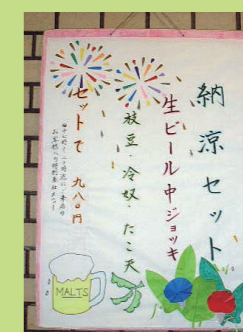 納涼セット
生ビール中ジョッキ
枝豆・冷奴・たこ天
セットで 九八〇円
MALTS